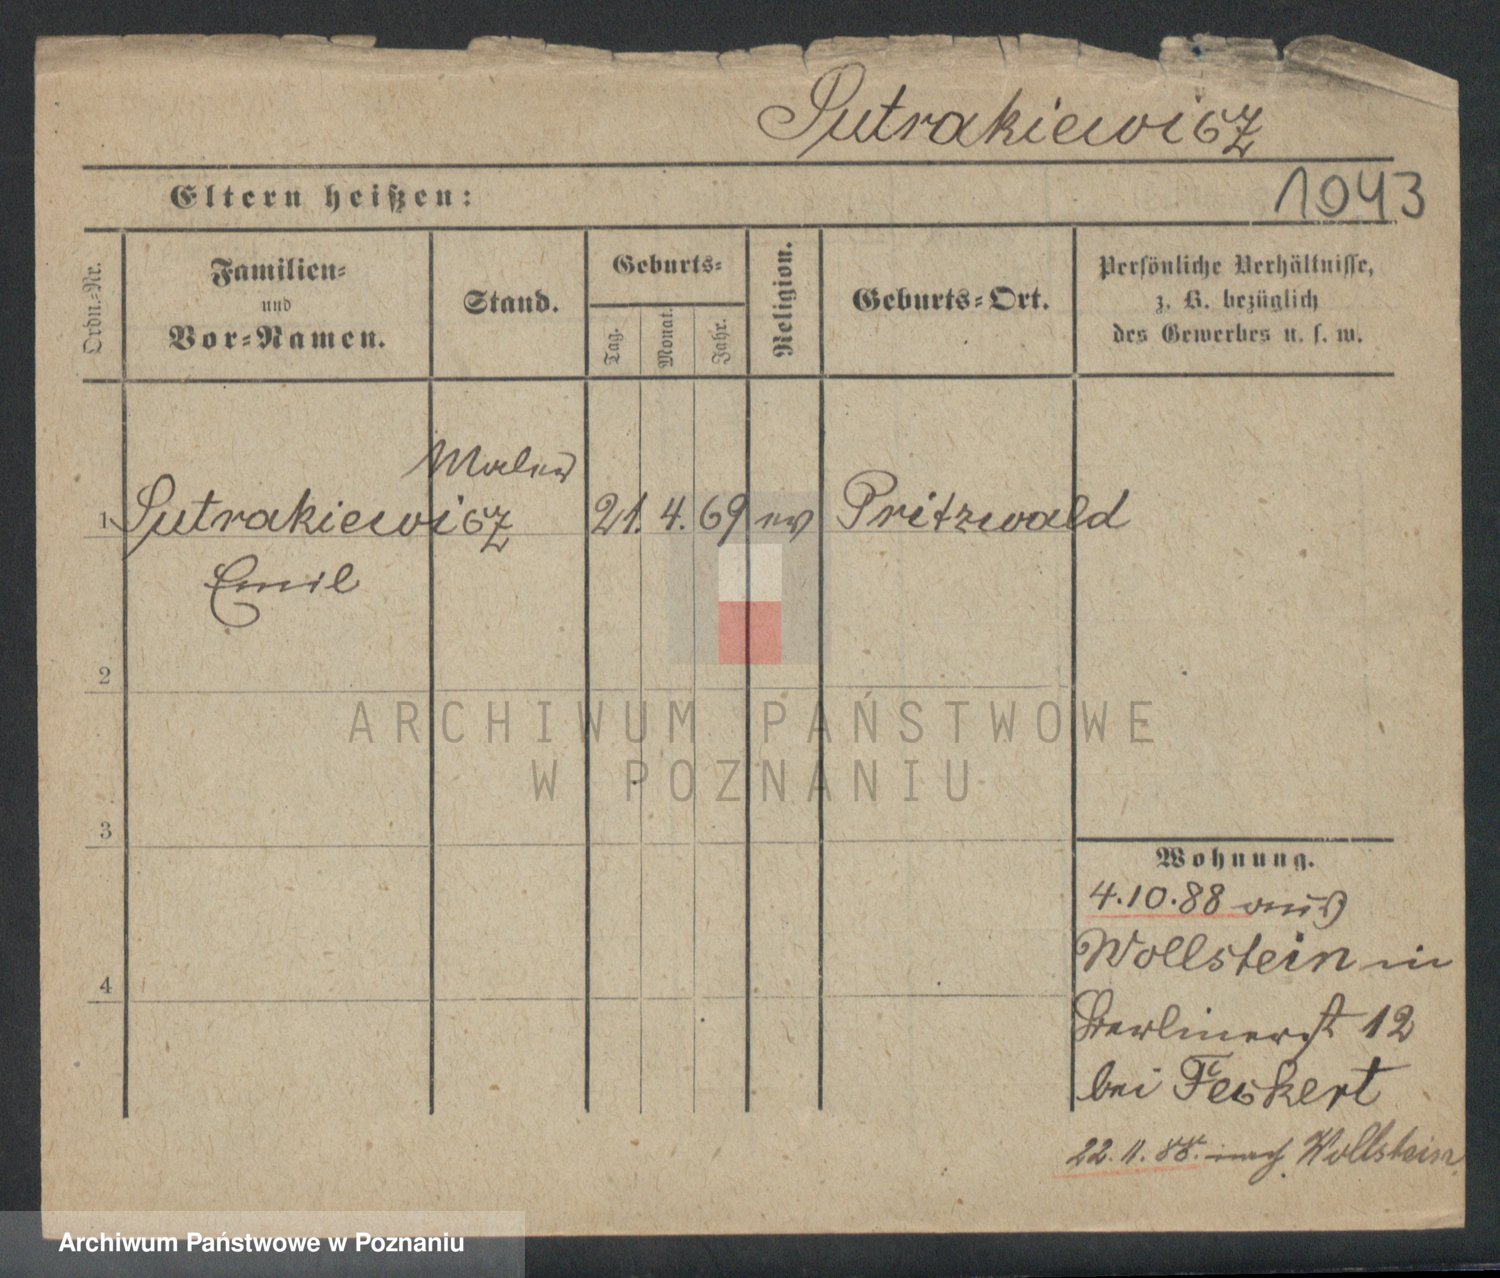 Sutrakiewicz
Eltern heißen:
1943
Ordn.-Nr.
Familien-
und
Vor-Namen.
Stand.
Geburts-
Tag.
Monat.
Jahr.
Religion.
Geburts-Ort.
Persönliche Verhältnisse,
z. B. bezüglich
des Gewerbes u. s. w.
Maler
1 Sutrakiewicz 21. 4. 69 ev Pritzwald
Emil
2
3
4
ARCHIWUM PAŃSTWOWE
W POZNANIU
Wohnung.
4.10.88 aus
Wollstein in
Berlinerst 12
bei Feckert
22.11.88. nach Wollstein.
Archiwum Państwowe w Poznaniu